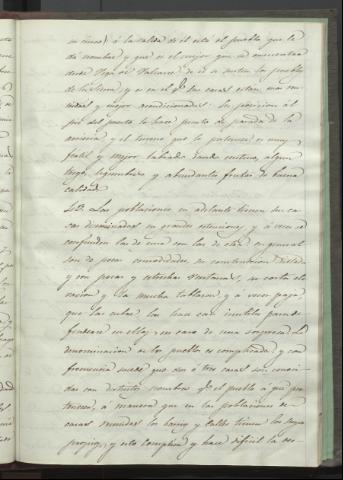 á la salida de él está el pueblo que le
dá nombre y que es el mejor que se encuentra
desde Vega de Valcarce
y es en el q.e las casas están mas
y mejor acondicionadas. Su posicion al
pie del puerto le hace punto de parada de la
y el terreno que le es muy
fertil y mejor labrado donde cultiva algun
trigo, legumbres y abundante frutas de buena
calidad.
Las poblaciones en adelante tienen sus ca-
sas diseminadas en grandes estenciones, y á veces se
confunden las de una con las de otra: en general
son de pocas comodidades, su construccion
y con pocas y estrechas ventanas, su corta ele-
vacion y la mucha y á veces paja,
que las cubre las hace casi inutiles para de-
fenderse en ellas, en caso de una sorpresa. La
denominacion de los pueblos es complicada, y con
frecuencia sucede que dos ó tres casas son conoci-
das con distinto nombre q.e el pueblo á que per-
tenecen, á manera que en las poblaciones de
casas reunidas los barrios y calles tienen los suyos
propios, y esto complica y hace dificil la